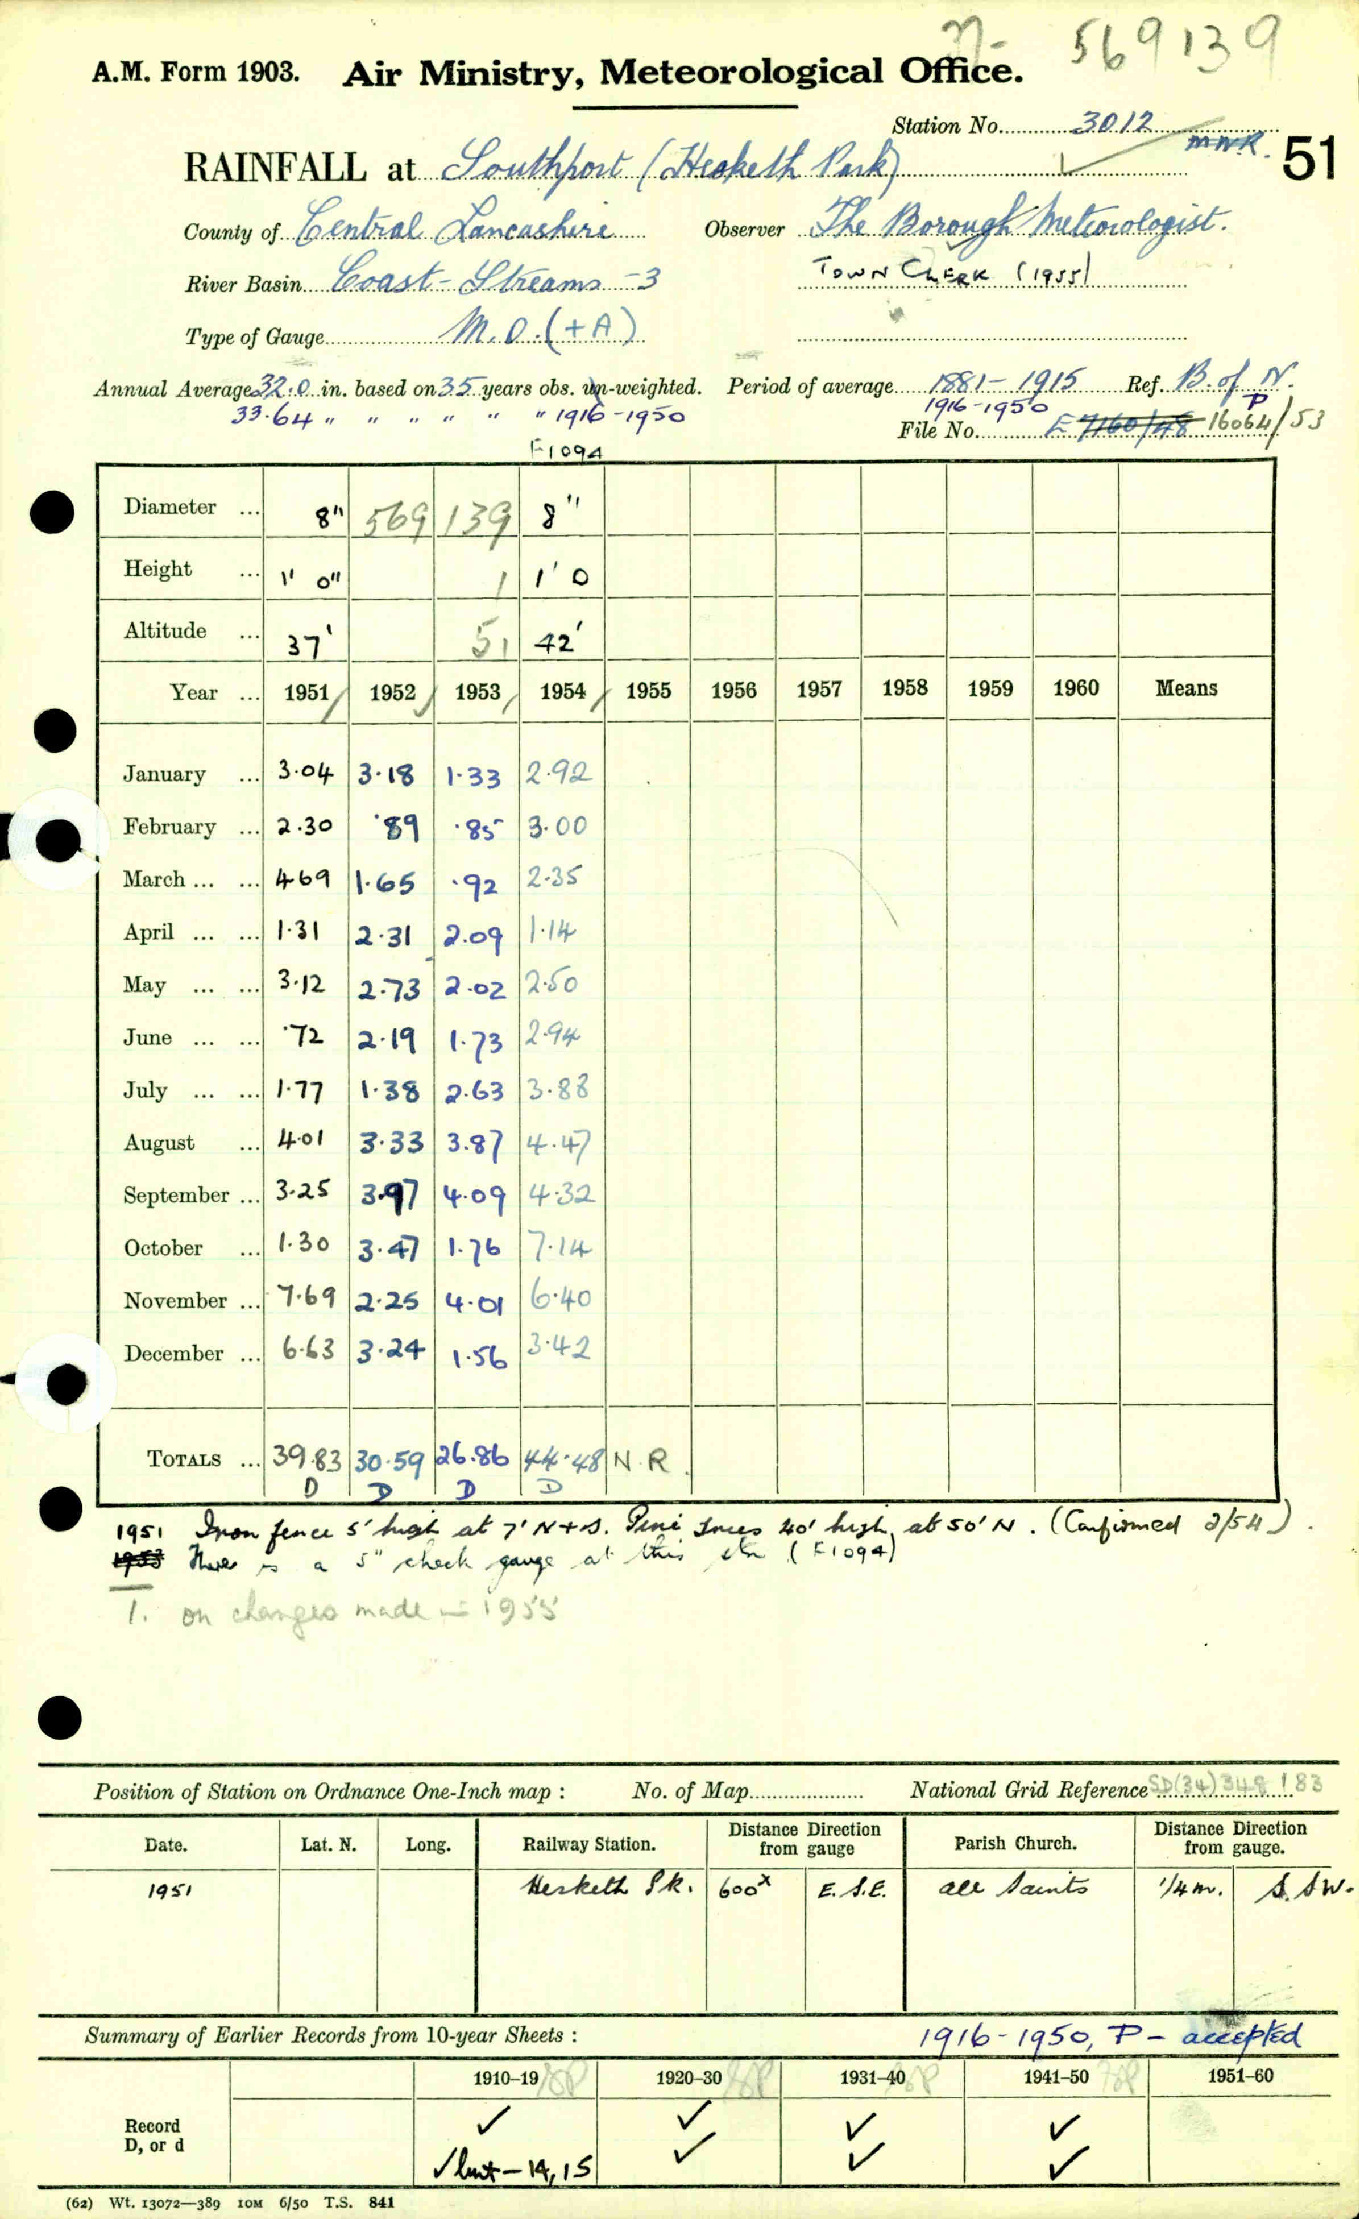 569139
A.M. Form 1903. Air Ministry, Meteorological Office.
Station No. 3012
M.W.R. 51
RAINFALL at Southport (Hesketh Park)
County of Central Lancashire Observer The Borough Meteorologist.
River Basin Coast-Streams -3 TOWN CLERK (1955)
Type of Gauge M.O. (+A)
Annual Average 32.0 in. based on 35 years obs. un-weighted. Period of average 1881-1915 Ref. B. of N.
33.64 " " " " " " 1916-1950 1916-1950 P
File No. E 7160/48 16064/53
F1094
Diameter ... 8" 569 139 8"
Height ... 1' 0" 1 1' 0
Altitude ... 37' 51 42'
Year ... 1951 1952 1953 1954 1955 1956 1957 1958 1959 1960 Means
January ... 3.04 3.18 1.33 2.92
February ... 2.30 .89 .85 3.00
March ... ... 4.69 1.65 .92 2.35
April ... ... 1.31 2.31 2.09 1.14
May ... ... 3.12 2.73 2.02 2.50
June ... ... .72 2.19 1.73 2.94
July ... ... 1.77 1.38 2.63 3.88
August ... 4.01 3.33 3.87 4.47
September ... 3.25 3.97 4.09 4.32
October ... 1.30 3.47 1.76 7.14
November ... 7.69 2.25 4.01 6.40
December ... 6.63 3.24 1.56 3.42
TOTALS ... 39.83 30.59 26.86 44.48 N.R.
D D D D
1951 Iron fence 5' high at 7' N+S. Pine trees 40' high, at 50' N. (Confirmed 2/54).
1953 There is a 5" check gauge at this stn (F1094)
T. on changes made in 1955
Position of Station on Ordnance One-Inch map : No. of Map National Grid Reference SD(34)348183
Date. Lat. N. Long. Railway Station. Distance from Direction gauge Parish Church. Distance from Direction gauge.
1951 Hesketh Pk. 600x E.S.E. All Saints 1/4 m. S.SW.
Summary of Earlier Records from 10-year Sheets : 1916-1950, P - accepted
1910–19 1920–30 1931–40 1941–50 1951–60
Record ✓ ✓ ✓ ✓
D, or d ✓ but - 14, 15 ✓ ✓ ✓
(62) Wt. 13072—389 10M 6/50 T.S. 841